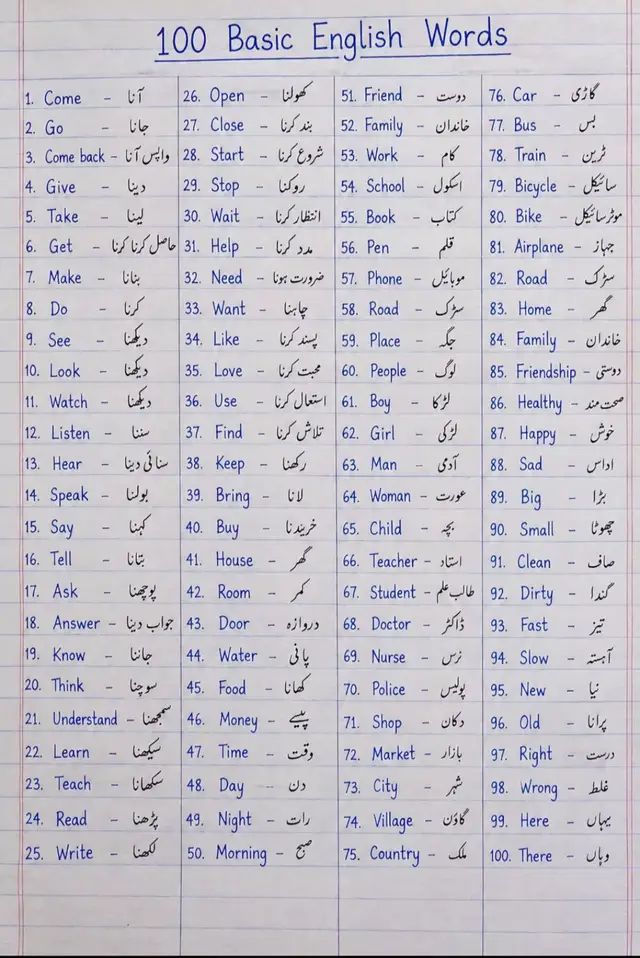 100 Basic English Words
1. Come - آنا
2. Go - جانا
3. Come back - واپس آنا
4. Give - دینا
5. Take - لینا
6. Get - حاصل کرنا کرنا
7. Make - بنانا
8. Do - کرنا
9. See - دیکھنا
10. Look - دیکھنا
11. Watch - دیکھنا
12. Listen - سننا
13. Hear - سنائی دینا
14. Speak - بولنا
15. Say - کہنا
16. Tell - بتانا
17. Ask - پوچھنا
18. Answer - جواب دینا
19. Know - جاننا
20. Think - سوچنا
21. Understand - سمجھنا
22. Learn - سیکھنا
23. Teach - سکھانا
24. Read - پڑھنا
25. Write - لکھنا
26. Open - کھولنا
27. Close - بند کرنا
28. Start - شروع کرنا
29. Stop - روکنا
30. Wait - انتظار کرنا
31. Help - مدد کرنا
32. Need - ضرورت ہونا
33. Want - چاہنا
34. Like - پسند کرنا
35. Love - محبت کرنا
36. Use - استعمال کرنا
37. Find - تلاش کرنا
38. Keep - رکھنا
39. Bring - لانا
40. Buy - خریدنا
41. House - گھر
42. Room - کمر
43. Door - دروازہ
44. Water - پانی
45. Food - کھانا
46. Money - پیسے
47. Time - وقت
48. Day - دن
49. Night - رات
50. Morning - صبح
51. Friend - دوست
52. Family - خاندان
53. Work - کام
54. School - اسکول
55. Book - کتاب
56. Pen - قلم
57. Phone - موبائیل
58. Road - سڑک
59. Place - جگہ
60. People - لوگ
61. Boy - لڑکا
62. Girl - لڑکی
63. Man - آدمی
64. Woman - عورت
65. Child - بچہ
66. Teacher - استاد
67. Student - طالب علم
68. Doctor - ڈاکٹر
69. Nurse - نرس
70. Police - پولیس
71. Shop - دکان
72. Market - بازار
73. City - شہر
74. Village - گاؤں
75. Country - ملک
76. Car - گاڑی
77. Bus - بس
78. Train - ٹرین
79. Bicycle - سائیکل
80. Bike - موٹر سائیکل
81. Airplane - جہاز
82. Road - سڑک
83. Home - گھر
84. Family - خاندان
85. Friendship - دوستی
86. Healthy - صحت مند
87. Happy - خوش
88. Sad - اداس
89. Big - بڑا
90. Small - چھوٹا
91. Clean - صاف
92. Dirty - گندا
93. Fast - تیز
94. Slow - آہستہ
95. New - نیا
96. Old - پرانا
97. Right - درست
98. Wrong - غلط
99. Here - یہاں
100. There - وہاں